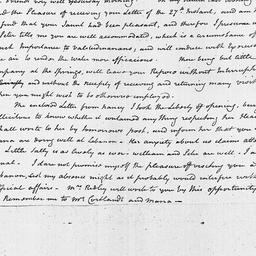 friend very well yesterday morning. On my
had the Pleasure of receiving your Letter of the 27th Instant, and am
find that your Jaunt had been pleasant, and therefore I presume
John tells me you are well accommodated, which is a circumstance of
much Importance to Valetudinarians; and will conduce with exercise
air to render the water more efficacious. There being but little
company at the Springs, will leave your Repose without Interruption
and without the necessity of receiving and returning many visits
when you might wish to be otherwise employed.
The enclosed Letter from Nancy I took the Liberty of opening, being
sollicitous to know whether it contained any thing respecting her Health
shall write to her by tomorrows post, and inform her that you &
mama are doing well at Lebanon. Her anxiety about us claims atten
Little Sally is as lively as ever. William and John are well. I am
usual. I dare not promise myself the pleasure of visiting you at
Lebanon, lest my absence might as it probably would interfere with
official affairs. Mrs. Ridley will write to you by this opportunity
Remember me to Mrs Cortlandt and Maria